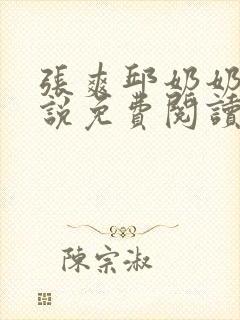 張爽邱奶奶
說免費閱讀
陳宗淑